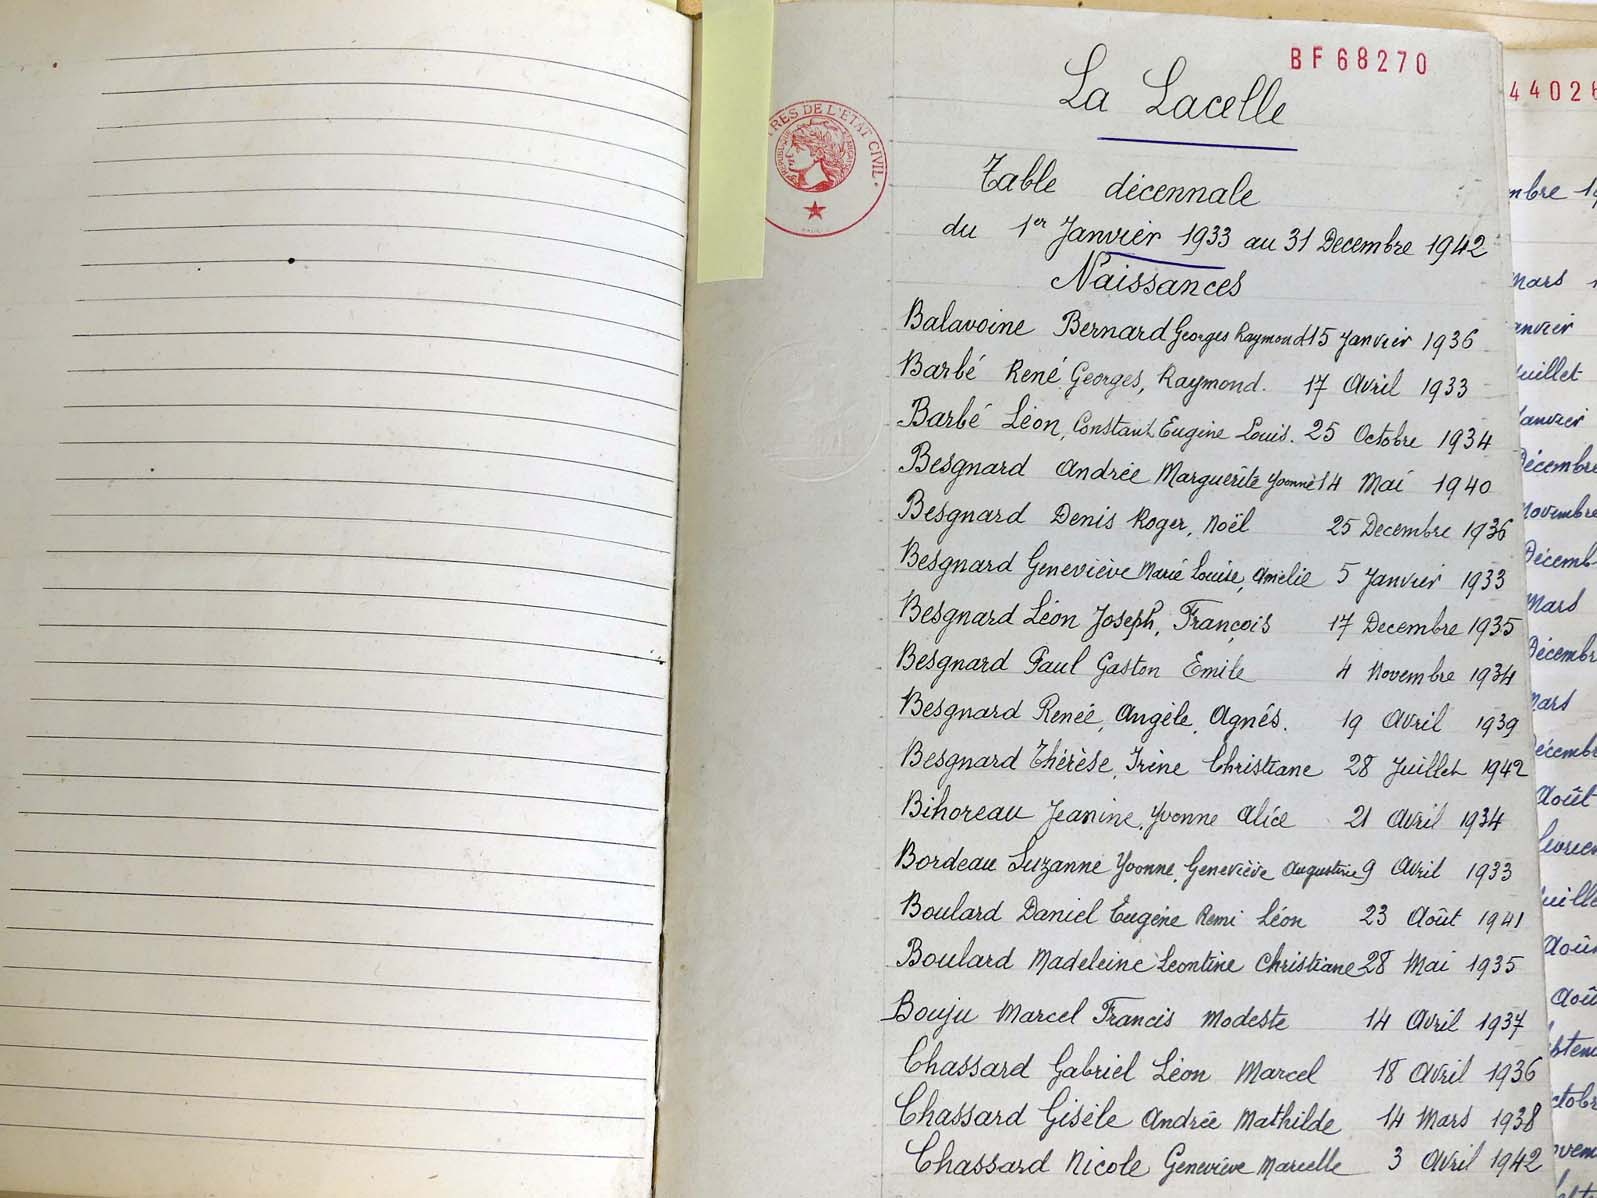 BF68270
La Lacelle
TRES DE L'ETAT CIVIL
Table décennale
du 1er Janvier 1933 au 31 Decembre 1942
Naissances
Balavoine Bernard Georges Raymond 15 Janvier 1936
Barbé René, Georges, Raymond. 17 Avril 1933
Barbé Léon, Constant Eugène Louis. 25 Octobre 1934
Besgnard Andrée Marguerite Yvonne 14 Mai 1940
Besgnard Denis Roger, Noël 25 Decembre 1936
Besgnard Geneviève Marie Louise, Amélie 5 Janvier 1933
Besgnard Léon Joseph, François 17 Decembre 1935
Besgnard Paul Gaston Emile 4 Novembre 1934
Besgnard Renée, Angèle, Agnés. 19 Avril 1939
Besgnard Thérèse, Irène Christiane 28 Juillet 1942
Bihoreau Jeanine, Yvonne Alice 21 Avril 1934
Bordeau Suzanne Yvonne, Geneviève Augustine 9 Avril 1933
Boulard Daniel Eugène Remi Léon 23 Août 1941
Boulard Madeleine Leontine Christiane 28 Mai 1935
Bouju Marcel Francis Modeste 14 Avril 1937
Chassard Gabriel Léon Marcel 18 Avril 1936
Chassard Gisèle Andrée Mathilde 14 Mars 1938
Chassard Nicole Geneviève Marcelle 3 Avril 1942
4402
mbre 19
Mars
anvier
uillet
Janvier
Décembre
Novembre
Décemb
Mars
Décembr
Mars
écembr
Août
uille
Août
ctobr